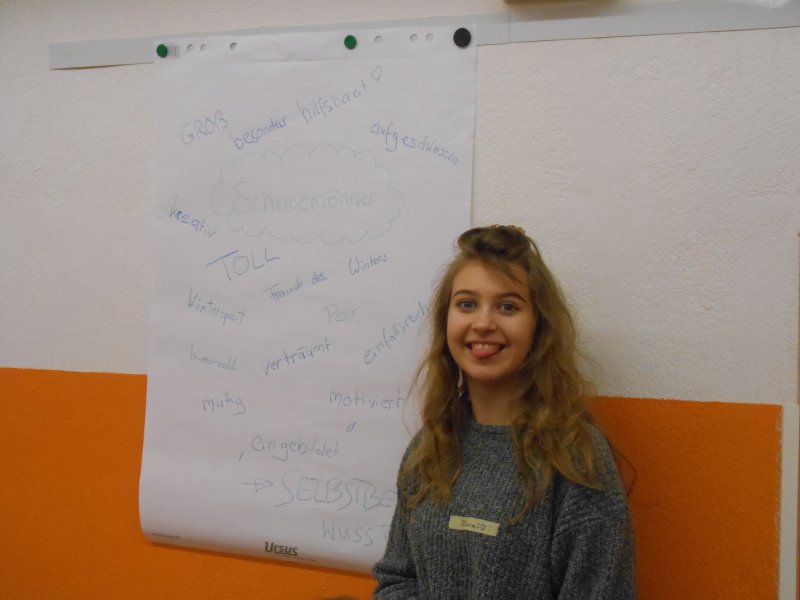 GROß
besonders hilfsbereit ♡
aufgeschlossen
Schneemänner
kreativ
TOLL
Freunde des Winters
Wintersport
Peer
einfallsreich
humorvoll
verträumt
mutig
motiviert
"eingebildet"
→ SELBSTBE
WUSST
Ursus